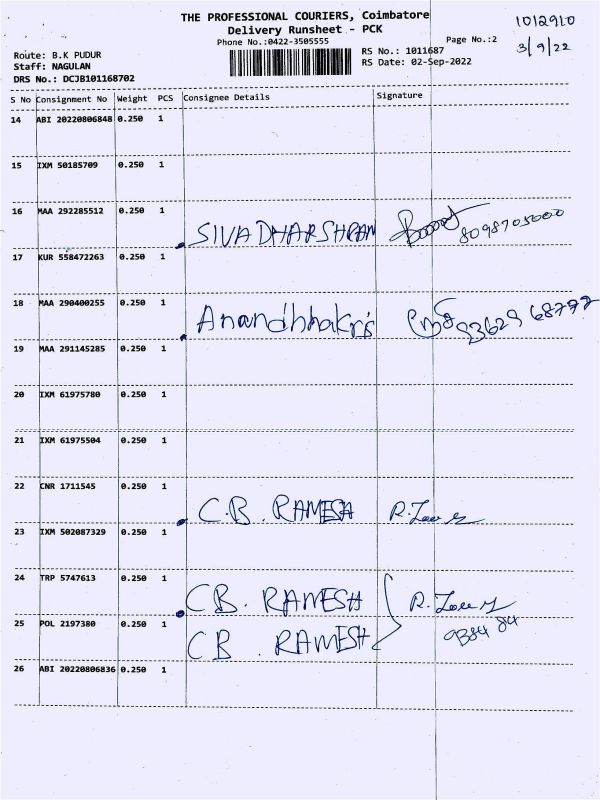 THE PROFESSIONAL COURIERS, Coimbatore
Delivery Runsheet - PCK
Phone No.:0422-3505555
1012910
3/9/22
Page No.:2
Route: B.K PUDUR
Staff: NAGULAN
DRS No.: DCJB101168702
RS No.: 1011687
RS Date: 02-Sep-2022
S No Consignment No Weight PCS Consignee Details Signature
14 ABI 20220806848 0.250 1
15 IXM 50185709 0.250 1
16 MAA 292285512 0.250 1
SIVADHARSHRAN 8098705000
17 KUR 558472263 0.250 1
18 MAA 290400255 0.250 1
Anandhhakris 93629 68772
19 MAA 291145285 0.250 1
20 IXM 61975780 0.250 1
21 IXM 61975504 0.250 1
22 CNR 1711545 0.250 1
C.B. RAMESH
23 IXM 502087329 0.250 1
24 TRP 5747613 0.250 1
CB. RAMESH
25 POL 2197380 0.250 1
CB. RAMESH 9384 84
26 ABI 20220806836 0.250 1